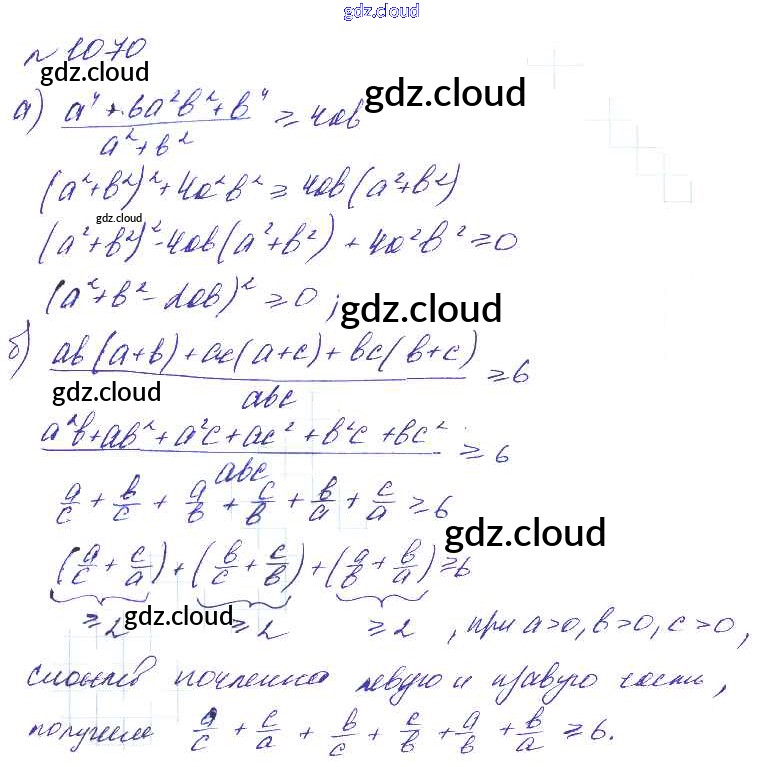 gdz.cloud
№ 1070
gdz.cloud
а) (a⁴ + 6a²b² + b⁴)/(a² + b²) ≥ 4ab
gdz.cloud
(a²+b²)² + 4a²b² ≥ 4ab(a²+b²)
gdz.cloud
(a²+b²)² - 4ab(a²+b²) + 4a²b² ≥ 0
(a²+b² - 2ab)² ≥ 0;
gdz.cloud
б) (ab(a+b) + ac(a+c) + bc(b+c))/abc ≥ 6
gdz.cloud
(a²b + ab² + a²c + ac² + b²c + bc²)/abc ≥ 6
a/c + b/c + a/b + c/b + b/a + c/a ≥ 6
gdz.cloud
(a/c + c/a) + (b/c + c/b) + (a/b + b/a) ≥ 6
≥ 2 ≥ 2 ≥ 2, при a>0, b>0, c>0,
gdz.cloud
сложив почленно левую и правую части,
получим a/c + c/a + b/c + c/b + a/b + b/a ≥ 6.